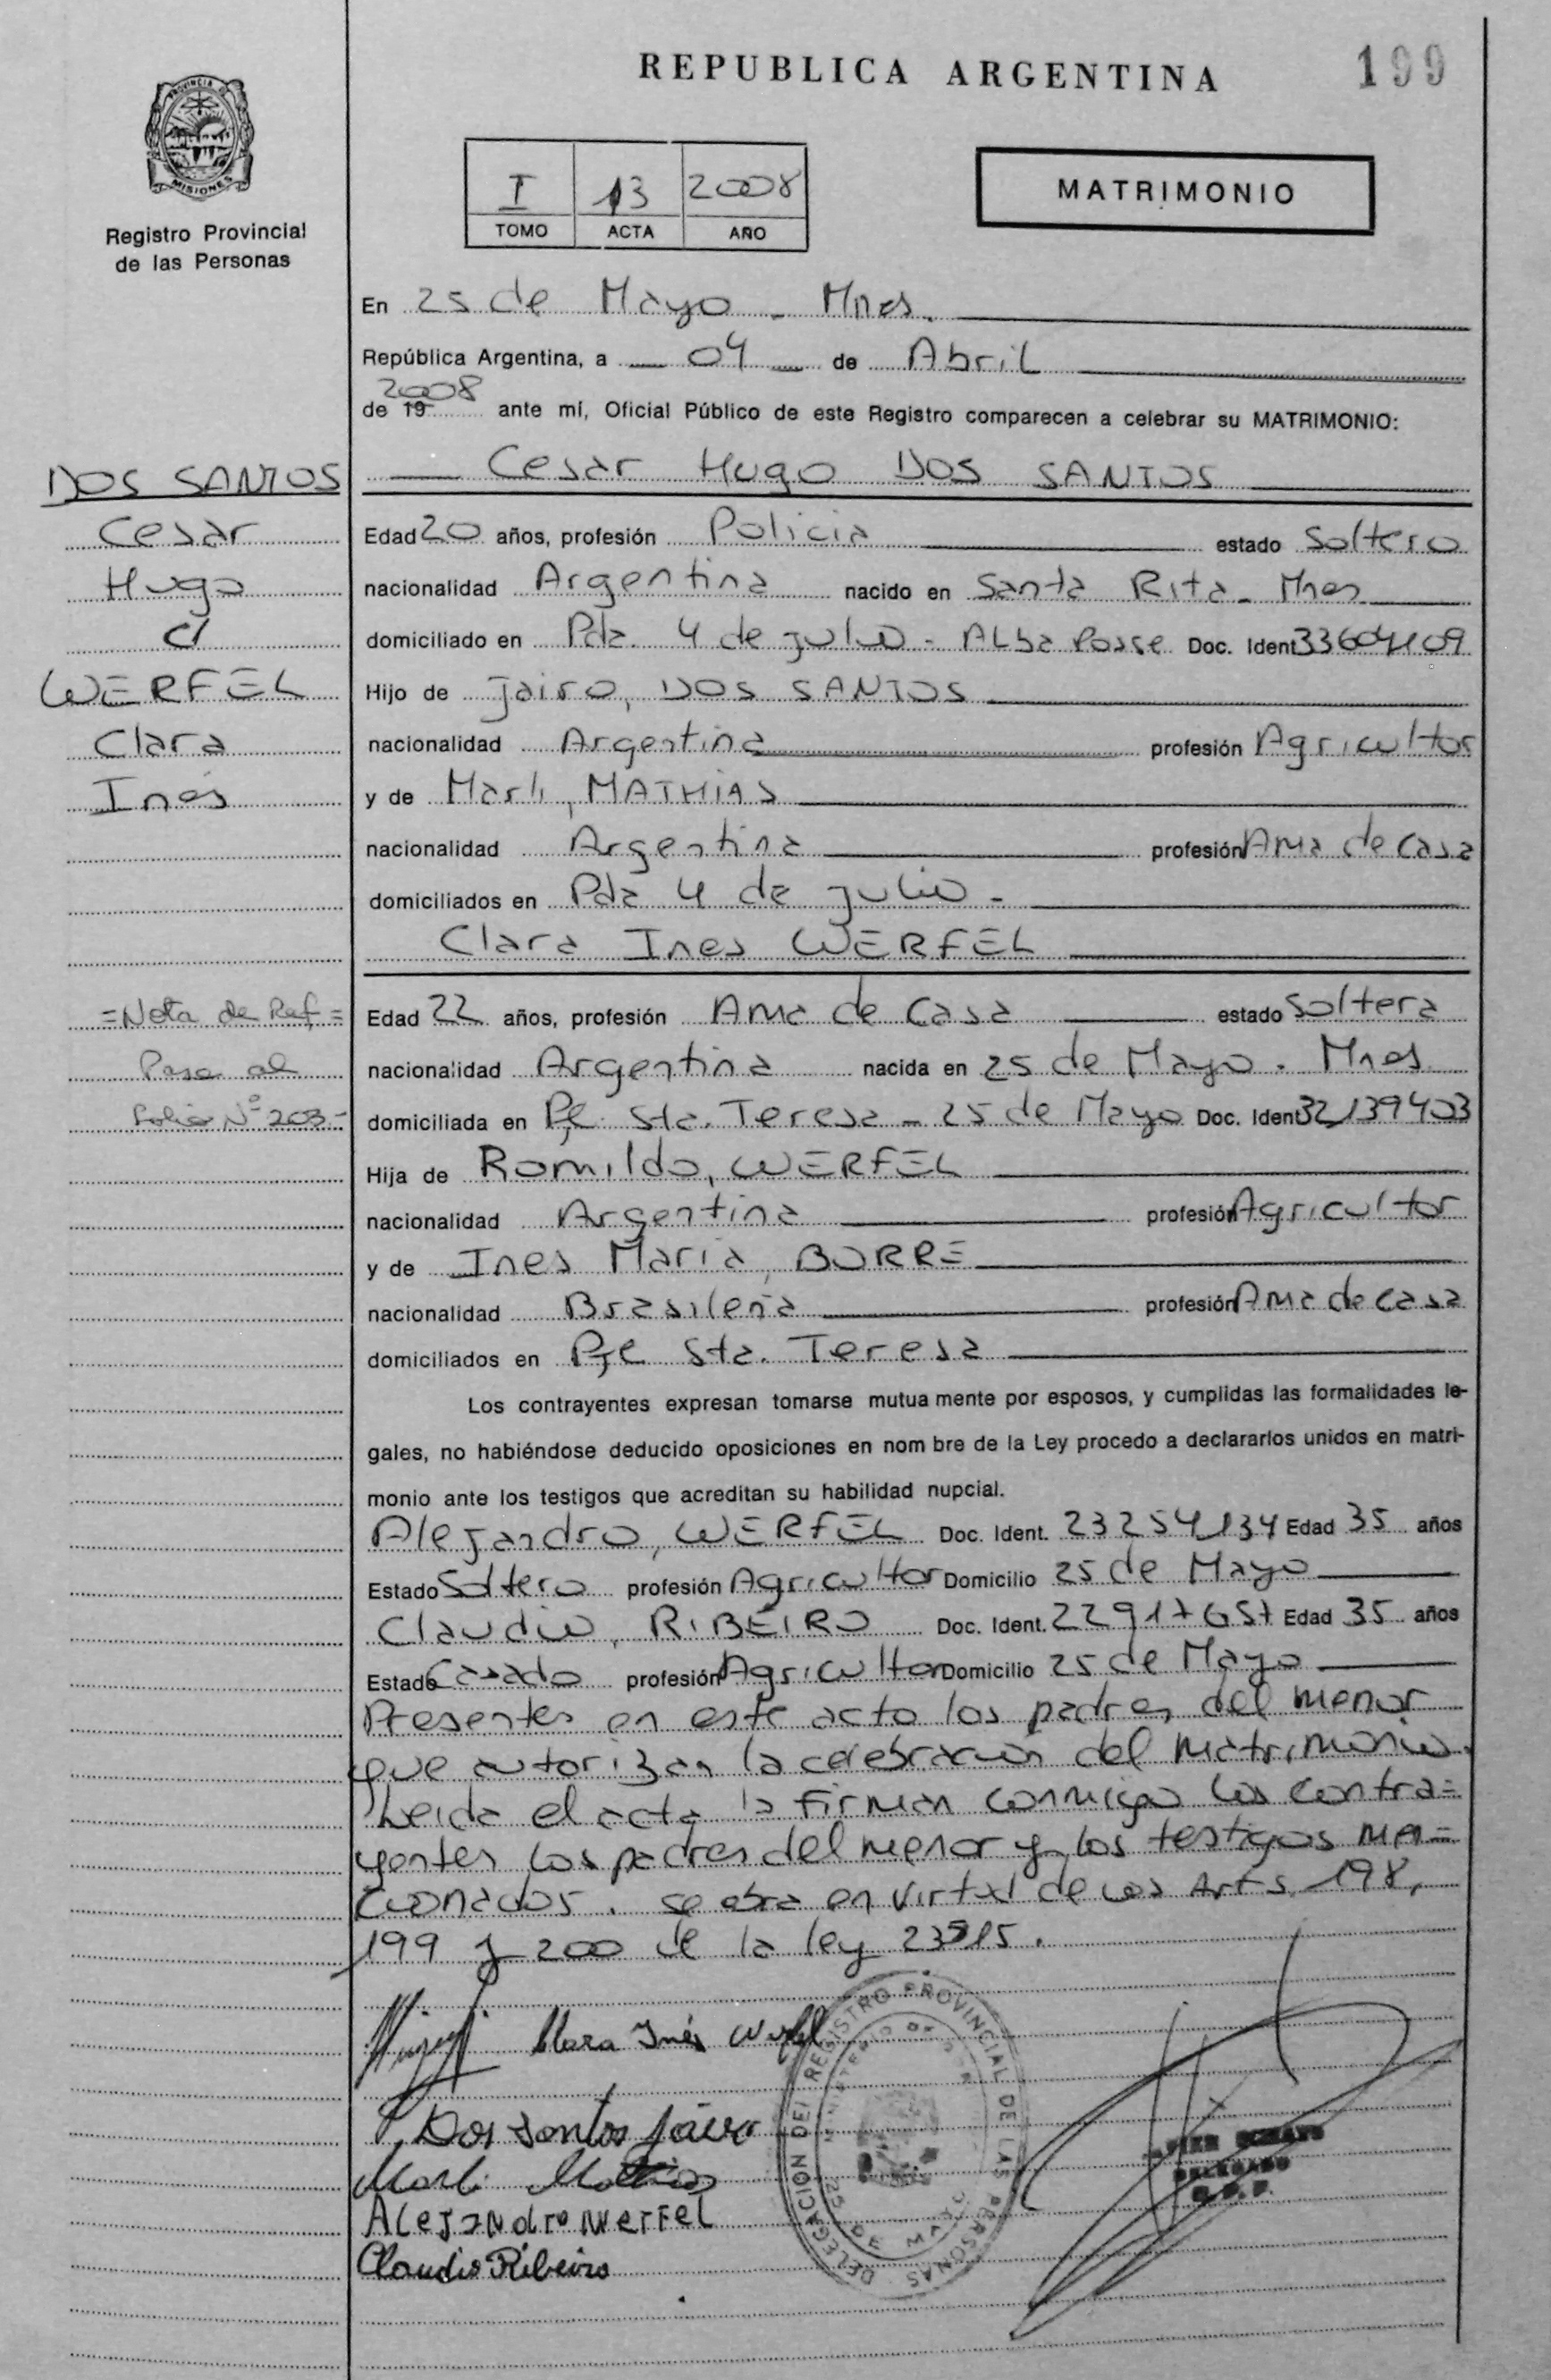 REPUBLICA ARGENTINA
199
PROVINCIA DE
MISIONES
Registro Provincial
de las Personas
I 13 2008
TOMO ACTA AÑO
MATRIMONIO
En 25 de Mayo - Mnes.
República Argentina, a 04 de Abril
2008
de 19 ante mí, Oficial Público de este Registro comparecen a celebrar su MATRIMONIO:
Cesar Hugo DOS SANTOS
DOS SANTOS
Cesar
Hugo
c/
WERFEL
Clara
Inés
Edad 20 años, profesión Policia estado Soltero
nacionalidad Argentina nacido en Santa Rita - Mnes
domiciliado en Pda. 4 de julio - ALba Posse Doc. Ident 33604109
Hijo de Jairo, DOS SANTOS
nacionalidad Argentina profesión Agricultor
y de Marli, MATHIAS
nacionalidad Argentina profesión Ama de casa
domiciliados en Pda 4 de julio -
Clara Ines WERFEL
=Nota de Ref=
Pasa al
Folio Nº 203-
Edad 22 años, profesión Ama de Casa estado Soltera
nacionalidad Argentina nacida en 25 de Mayo - Mnes
domiciliada en Pje Sta. Teresa - 25 de Mayo Doc. Ident 32139403
Hija de Romildo, WERFEL
nacionalidad Argentina profesión Agricultor
y de Ines Maria, BORRE
nacionalidad Brasileña profesión Ama de casa
domiciliados en Pje Sta. Teresa
Los contrayentes expresan tomarse mutua mente por esposos, y cumplidas las formalidades le-
gales, no habiéndose deducido oposiciones en nom bre de la Ley procedo a declararlos unidos en matri-
monio ante los testigos que acreditan su habilidad nupcial.
Alejandro, WERFEL Doc. Ident. 23254134 Edad 35 años
Estado Soltero profesión Agricultor Domicilio 25 de Mayo
Claudio, RIBEIRO Doc. Ident. 22917657 Edad 35 años
Estado Casado profesión Agricultor Domicilio 25 de Mayo
Presentes en este acto los padres del menor
que autorizan la celebracion del matrimonio.
Leida el acta la Firman conmigo los contra=
yentes los padres del menor y los testigos men=
cionados. se obra en virtud de los Arts. 198,
199 y 200 de la ley 23515.
Clara Inés Werfel
Dos Santos Jairo
Marli Mathias
Alejandro Werfel
Claudio Ribeiro
DELEGACION DEL REGISTRO PROVINCIAL DE LAS PERSONAS
DELEGADO